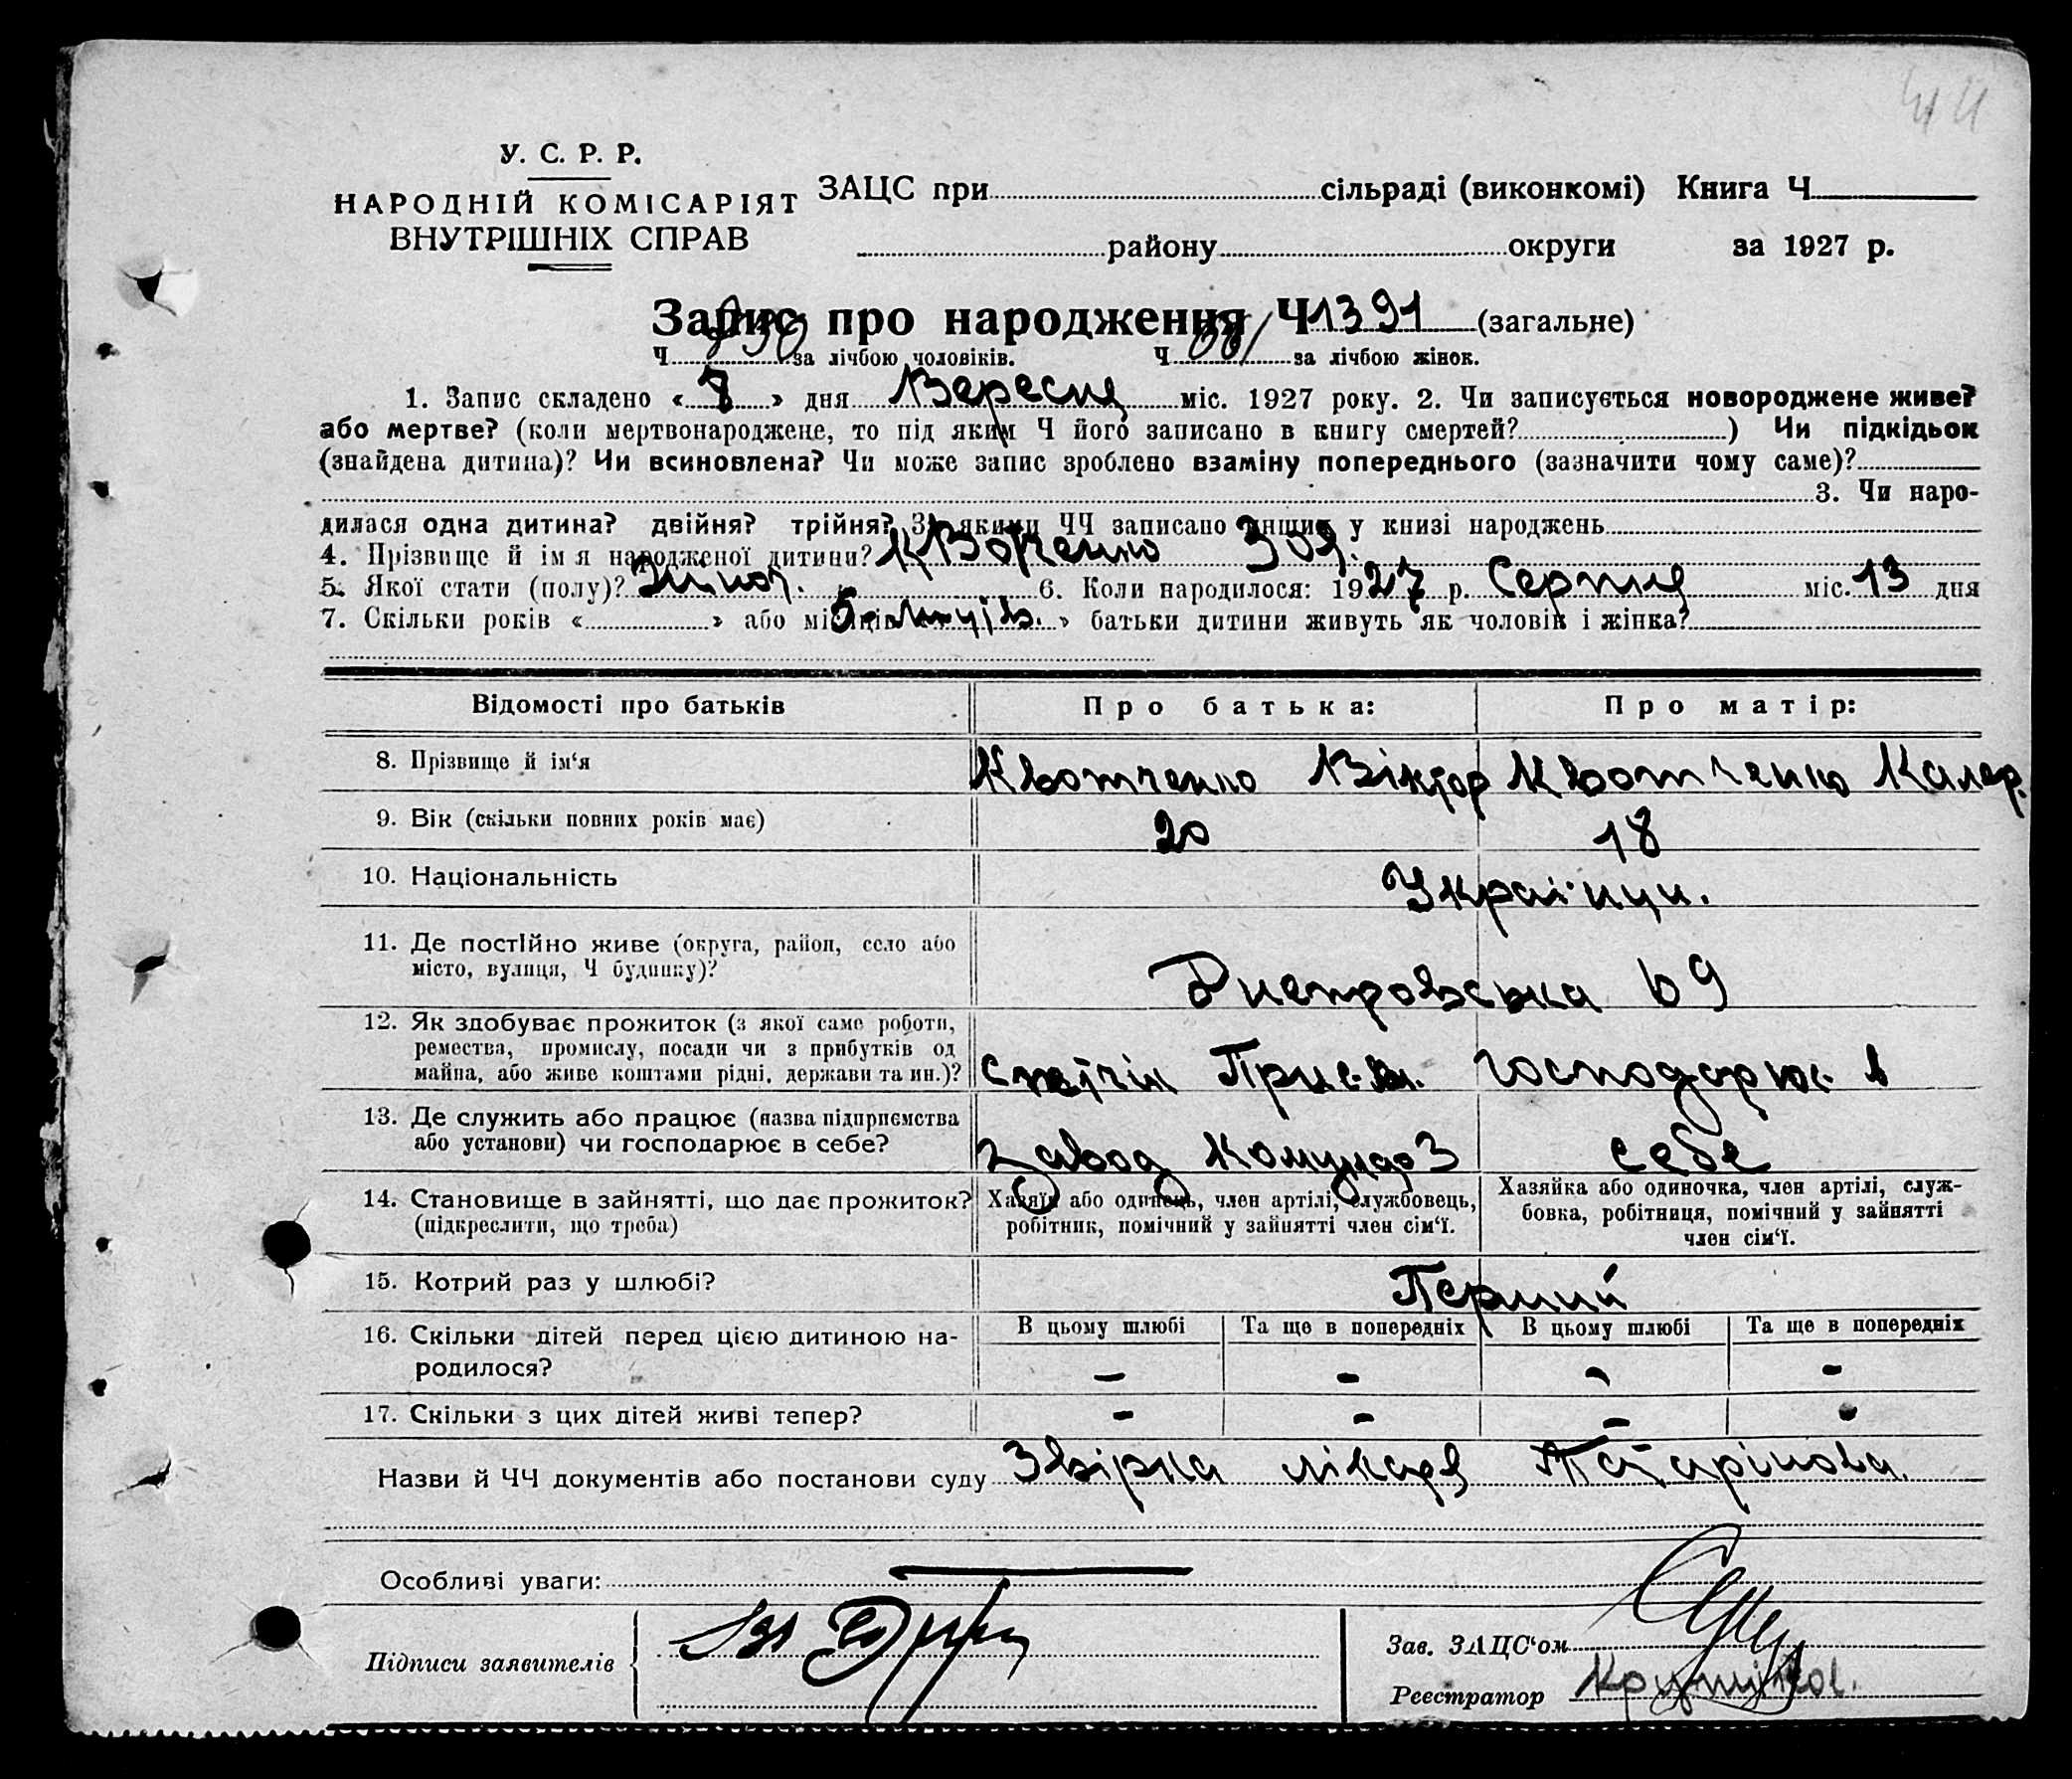 44
У. С. Р. Р.
НАРОДНІЙ КОМІСАРІЯТ
ВНУТРІШНІХ СПРАВ
ЗАЦС при сільраді (виконкомі) Книга Ч
району округи за 1927 р.
Запис про народження Ч 1391 (загальне)
Ч за лічбою чоловіків. Ч за лічбою жінок.
1. Запис складено « 8 » дня Вересня міс. 1927 року. 2. Чи записується новороджене живе?
або мертве? (коли мертвонароджене, то під яким Ч його записано в книгу смертей? ) Чи підкідьок
(знайдена дитина)? Чи всиновлена? Чи може запис зроблено взаміну попереднього (зазначити чому саме)?
3. Чи наро-
дилася одна дитина? двійня? трійня? За якими ЧЧ записано инших у книзі народжень
4. Прізвище й ім я народженої дитини? Квотченко Зоя.
5. Якої стати (полу)? Жіноч. 6. Коли народилося: 1927 р. Серпня міс. 13 дня
7. Скільки років « » або місяців » батьки дитини живуть як чоловік і жінка?
Відомості про батьків Про батька: Про матір:
8. Прізвище й ім‘я Квотченко Віктор Квотченко Калер.
9. Вік (скільки повних років має) 20 18
10. Національність Українци.
11. Де постійно живе (округа, район, село або
місто, вулиця, Ч будинку)? Днепровська 69
12. Як здобуває прожиток (з якої саме роботи,
ремества, промислу, посади чи з прибутків од
майна, або живе коштами рідні, держави та ин.)? господарює в
13. Де служить або працює (назва підприємства
або установи) чи господарює в себе? завод себе
14. Становище в зайнятті, що дає прожиток?
(підкреслити, що треба)
Хазяїн або одинець, член артілі, службовець,
робітник, помічний у зайнятті член сім‘ї.
Хазяйка або одиночка, член артілі, служ-
бовка, робітниця, помічний у зайнятті
член сім‘ї.
15. Котрий раз у шлюбі? Перший
16. Скільки дітей перед цією дитиною на-
родилося?
В цьому шлюбі Та ще в попередніх В цьому шлюбі Та ще в попередніх
– – – –
17. Скільки з цих дітей живі тепер? – – – –
Назви й ЧЧ документів або постанови суду Звірка лікаря Татарінова.
Особливі уваги:
Підписи заявителів
Зав. ЗАЦС‘ом
Реєстратор